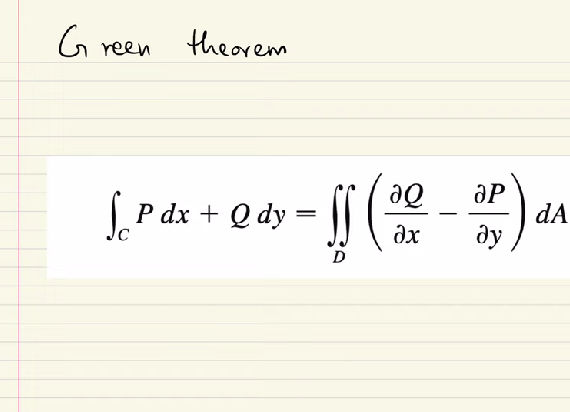 Green theorem
∫_C P dx + Q dy = ∬_D (∂Q/∂x − ∂P/∂y) dA